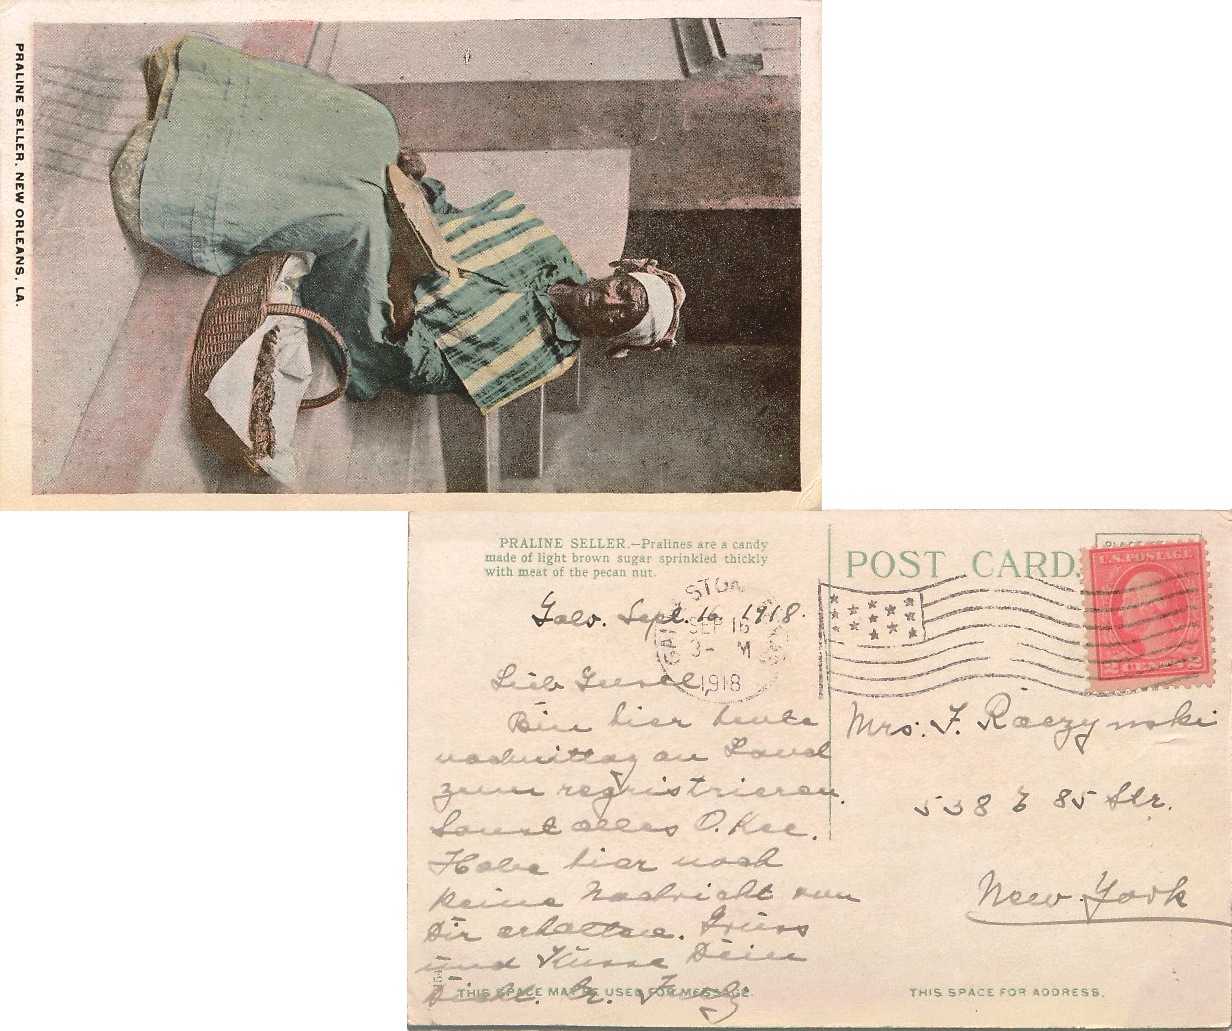 PRALINE SELLER, NEW ORLEANS, LA.
PRALINE SELLER.—Pralines are a candy
made of light brown sugar sprinkled thickly
with meat of the pecan nut.
POST CARD.
U.S. POSTAGE
2 CENTS 2
SEP 16
3- M
1918
Galv. Sept. 16, 1918.
Lieb
Bin hier heute
nachmittag an Land
zum regristrieren.
Sonst alles O. Kee.
Habe hier noch
keine Nachricht von
Dir erhalten. Gruss
und Küsse Dein
Mrs. F. Raczynski
538 E 85 Str.
New York
THIS SPACE MAY BE USED FOR MESSAGE.
THIS SPACE FOR ADDRESS.